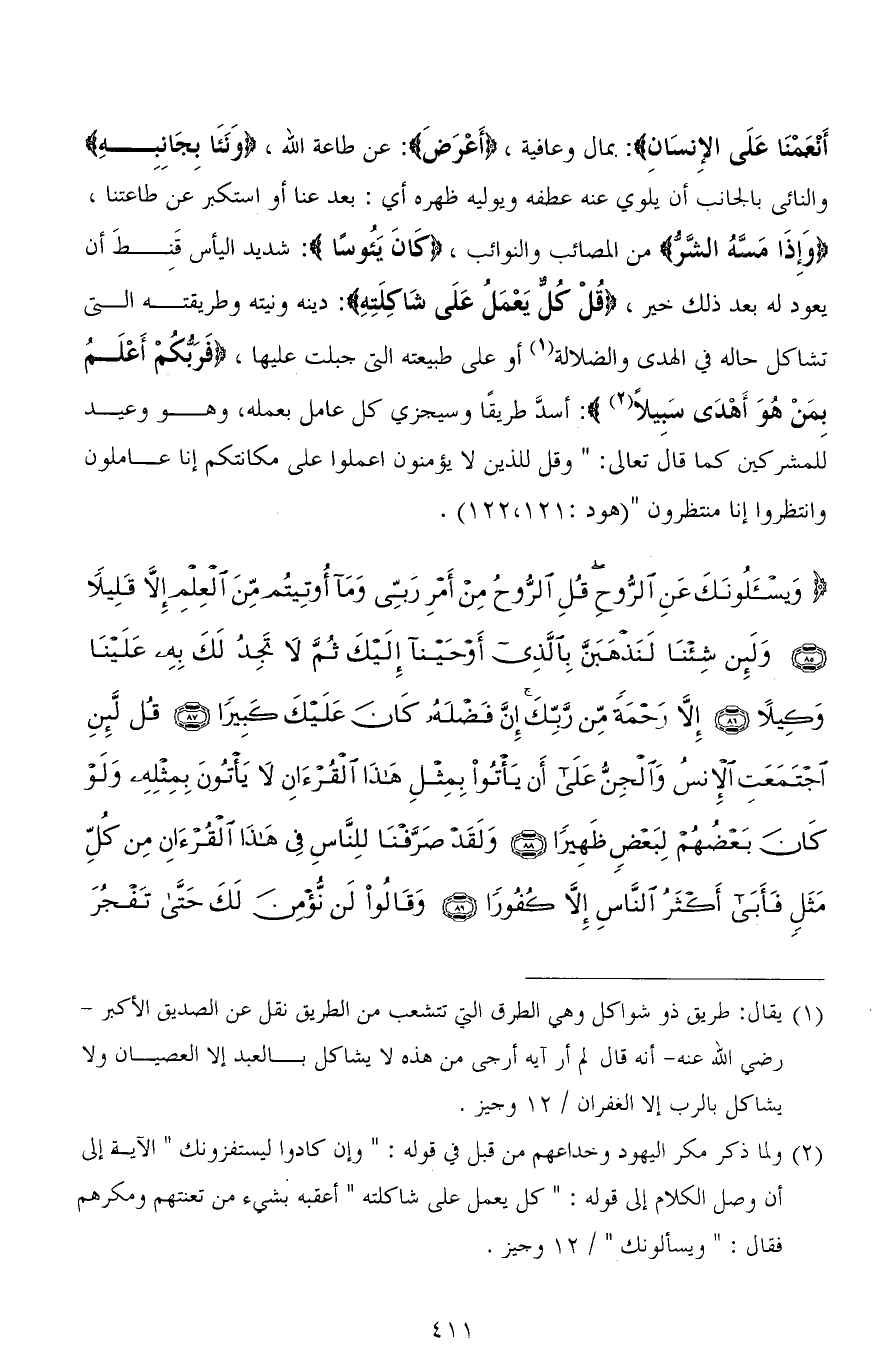 أَنْعَمْنَا عَلَى الإِنسَانِ﴾: بمال وعافية ، ﴿أَعْرَضَ﴾: عن طاعة الله ، ﴿وَنَئَا بِجَانِبِـــهِ﴾
والنائى بالجانب أن يلوي عنه عطفه ويوليه ظهره أي : بعد عنا أو استكبر عن طاعتنا ،
﴿وَإِذَا مَسَّهُ الشَّرُّ﴾ من المصائب والنوائب ، ﴿كَانَ يَئُوسًا ﴾: شديد اليأس قَنِـــطَ أن
يعود له بعد ذلك خير ، ﴿قُلْ كُلٌّ يَعْمَلُ عَلَى شَاكِلَتِهِ﴾: دينه ونيته وطريقتـــه الـــتى
تشاكل حاله في الهدى والضلالة(١) أو على طبيعته التى جبلت عليها ، ﴿فَرَبُّكُمْ أَعْلَـــمُ
بِمَنْ هُوَ أَهْدَى سَبِيلاً(٢) ﴾: أسدَّ طريقًا وسيجزي كل عامل بعمله، وهـــو وعيـــد
للمشركين كما قال تعالى: " وقل للذين لا يؤمنون اعملوا على مكانتكم إنا عـــاملون
وانتظروا إنا منتظرون "(هود :١٢٢،١٢١) .
﴿ وَيَسْـَٔلُونَكَ عَنِ ٱلرُّوحِ ۖ قُلِ ٱلرُّوحُ مِنْ أَمْرِ رَبِّى وَمَآ أُوتِيتُم مِّنَ ٱلْعِلْمِ إِلَّا قَلِيلًا
٨٥ وَلَئِن شِئْنَا لَنَذْهَبَنَّ بِٱلَّذِىٓ أَوْحَيْنَآ إِلَيْكَ ثُمَّ لَا تَجِدُ لَكَ بِهِۦ عَلَيْنَا
وَكِيلًا ٨٦ إِلَّا رَحْمَةً مِّن رَّبِّكَ ۚ إِنَّ فَضْلَهُۥ كَانَ عَلَيْكَ كَبِيرًا ٨٧ قُل لَّئِنِ
ٱجْتَمَعَتِ ٱلْإِنسُ وَٱلْجِنُّ عَلَىٰٓ أَن يَأْتُوا۟ بِمِثْلِ هَـٰذَا ٱلْقُرْءَانِ لَا يَأْتُونَ بِمِثْلِهِۦ وَلَوْ
كَانَ بَعْضُهُمْ لِبَعْضٍ ظَهِيرًا ٨٨ وَلَقَدْ صَرَّفْنَا لِلنَّاسِ فِى هَـٰذَا ٱلْقُرْءَانِ مِن كُلِّ
مَثَلٍ فَأَبَىٰٓ أَكْثَرُ ٱلنَّاسِ إِلَّا كُفُورًا ٨٩ وَقَالُوا۟ لَن نُّؤْمِنَ لَكَ حَتَّىٰ تَفْجُرَ
(١) يقال: طريق ذو شواكل وهي الطرق التي تتشعب من الطريق نقل عن الصديق الأكبر –
رضي الله عنه- أنه قال لم أر آيه أرجى من هذه لا يشاكل بـــالعبد إلا العصيـــان ولا
يشاكل بالرب إلا الغفران / ١٢ وجيز .
(٢) ولما ذكر مكر اليهود وخداعهم من قبل في قوله : " وإن كادوا ليستفزونك " الآيـة إلى
أن وصل الكلام إلى قوله : " كل يعمل على شاكلته " أعقبه بشيء من تعنتهم ومكرهم
فقال : " ويسألونك " / ١٢ وجيز .
٤١١